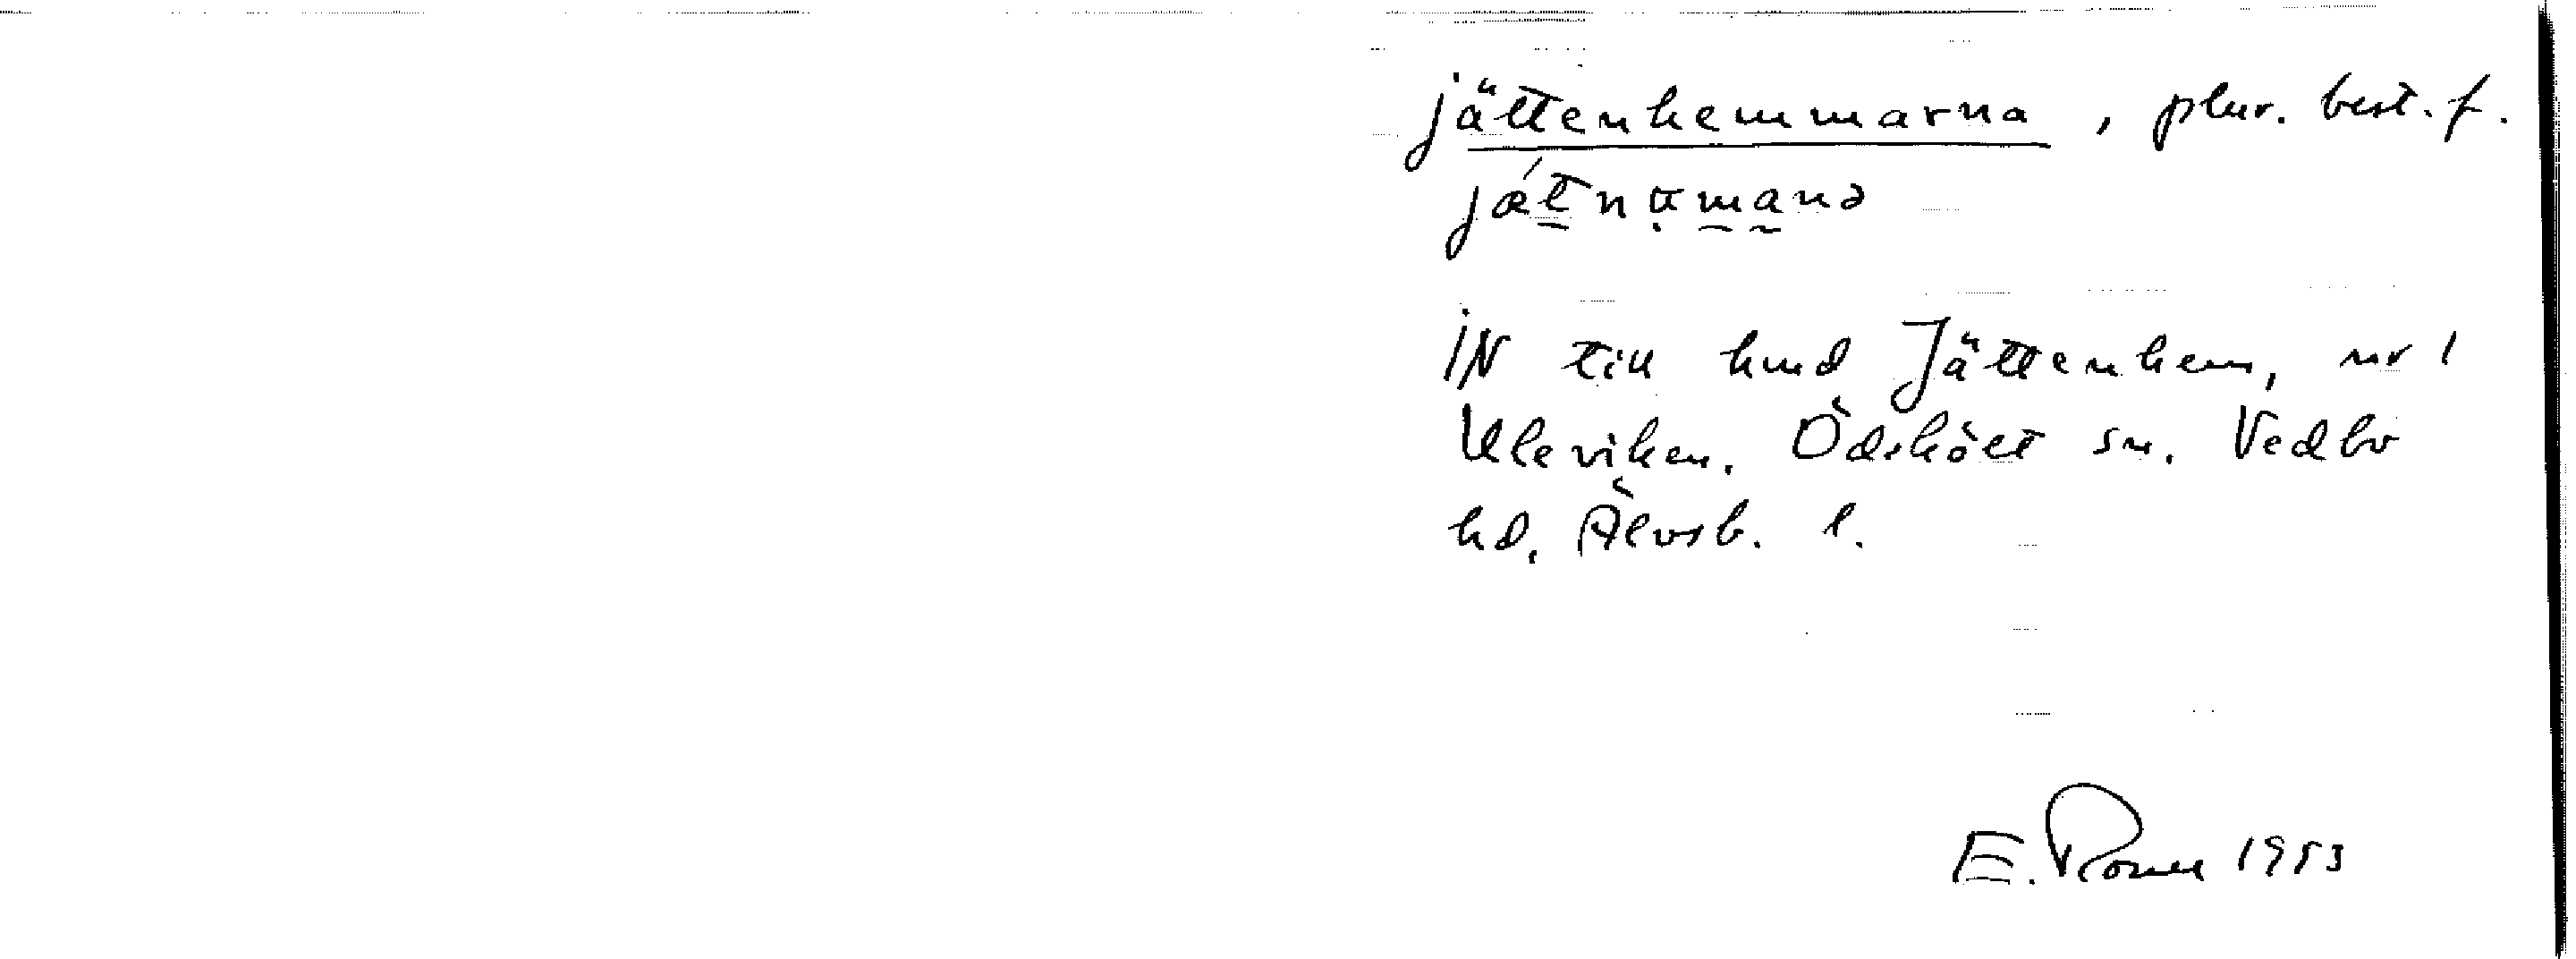 jättenhemmarna, plur. best. f.
IN till hmd Jättenhem, nr 1
Uleviken. Ödskölt sn. Vedbo
hd. Älvsb. l.
E. 1953